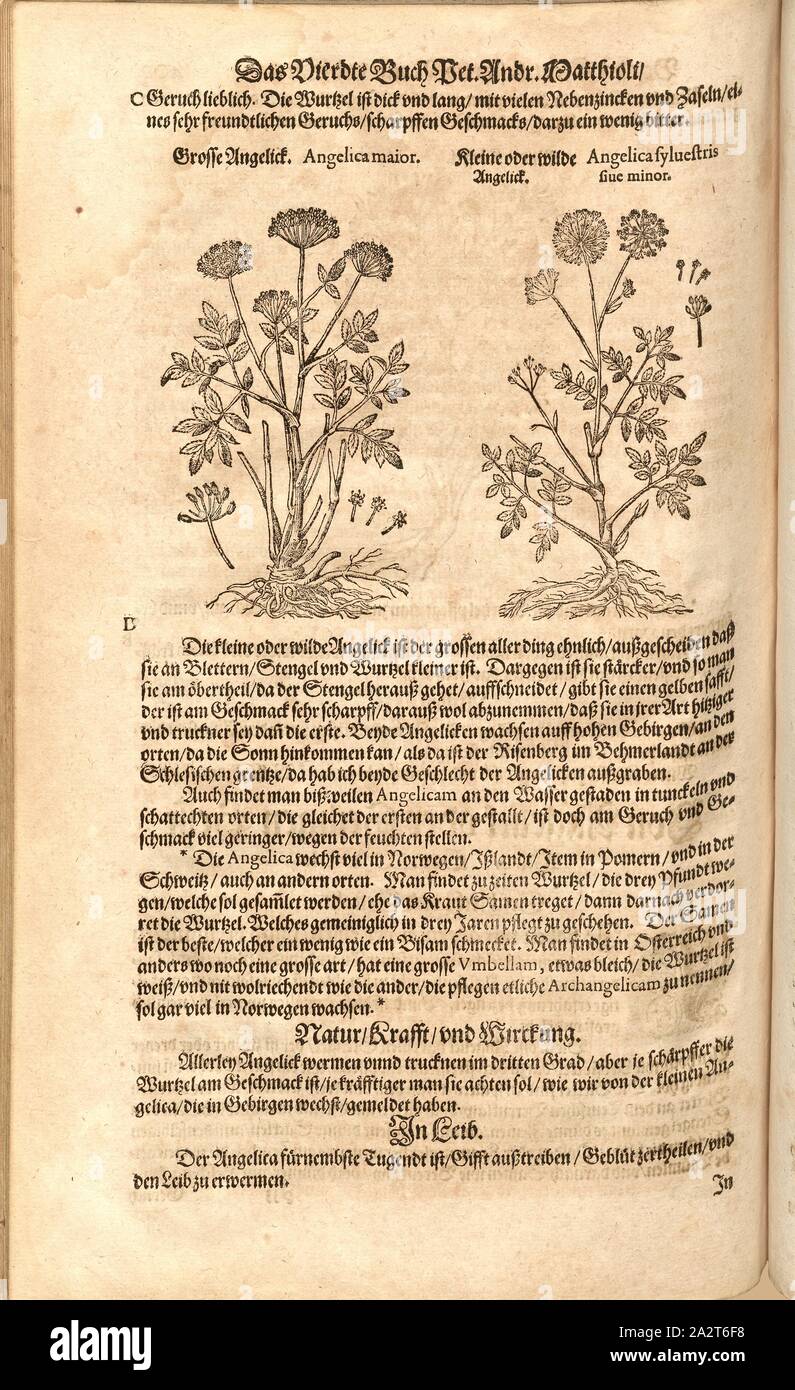 Das Vierdte Buch Pet. Andr. Matthioli/
C Geruch lieblich. Die Wurtzel ist dick vnd lang/ mit vielen Nebenzincken vnd Zaseln/ ei-
nes sehr freundtlichen Geruchs/ scharpffen Geschmacks/ darzu ein wenig bitter.
Grosse Angelick. Angelica maior. Kleine oder wilde Angelica syluestris
Angelick. siue minor.
D
Die kleine oder wilde Angelick ist der grossen aller ding ehnlich/ außgescheiden daß
sie an Blettern/ Stengel vnd Wurtzel kleiner ist. Dargegen ist sie stärcker/ vnd so man
sie am öbertheil/ da der Stengel herauß gehet/ auffschneidet/ gibt sie einen gelben safft/
der ist am Geschmack sehr scharpff/ darauß wol abzunemmen/ daß sie in jrer Art hitziger
vnd truckner sey dañ die erste. Beyde Angelicken wachsen auff hohen Gebirgen/ an den
orten/ da die Sonn hinkommen kan/ als da ist der Risenberg im Behmerlandt an der
Schlesischen grentze/ da hab ich beyde Geschlecht der Angelicken außgraben.
Auch findet man bißweilen Angelicam an den Wasser gestaden in tunckeln vnd
schattechten orten/ die gleichet der ersten an der gestallt/ ist doch am Geruch vnd Ge-
schmack viel geringer/ wegen der feuchten stellen.
* Die Angelica wechst viel in Norwegen/ Ißlandt/ Item in Pomern/ vnd in der
Schweitz/ auch an andern orten. Man findet zu zeiten Wurtzel/ die drey Pfundt we-
gen/ welche sol gesam̃let werden/ ehe das Kraut Samen treget/ dann darnach verdor-
ret die Wurtzel. Welches gemeiniglich in drey Jaren pflegt zu geschehen. Der Samen
ist der beste/ welcher ein wenig wie ein Bisam schmecket. Man findet in Osterreich vnd
anderswo noch eine grosse art/ hat eine grosse Vmbellam, etwas bleich/ die Wurtzel ist
weiß/ vnd nit wolriechendt wie die ander/ die pflegen etliche Archangelicam zu nennen/
sol gar viel in Norwegen wachsen.*
Natur/ Krafft/ vnd Wirckung.
Allerley Angelick wermen vnnd trucknen im dritten Grad/ aber je schärpffer die
Wurtzel am Geschmack ist/ je kräfftiger man sie achten sol/ wie wir von der kleinen An-
gelica/ die in Gebirgen wechst/ gemeldet haben.
In Leib.
Der Angelica fürnembste Tugendt ist/ Gifft außtreiben/ Geblüt zertheilen/ vnd
den Leib zu erwermen.
In
alamy
Image ID: 2A2T6F8
www.alamy.com